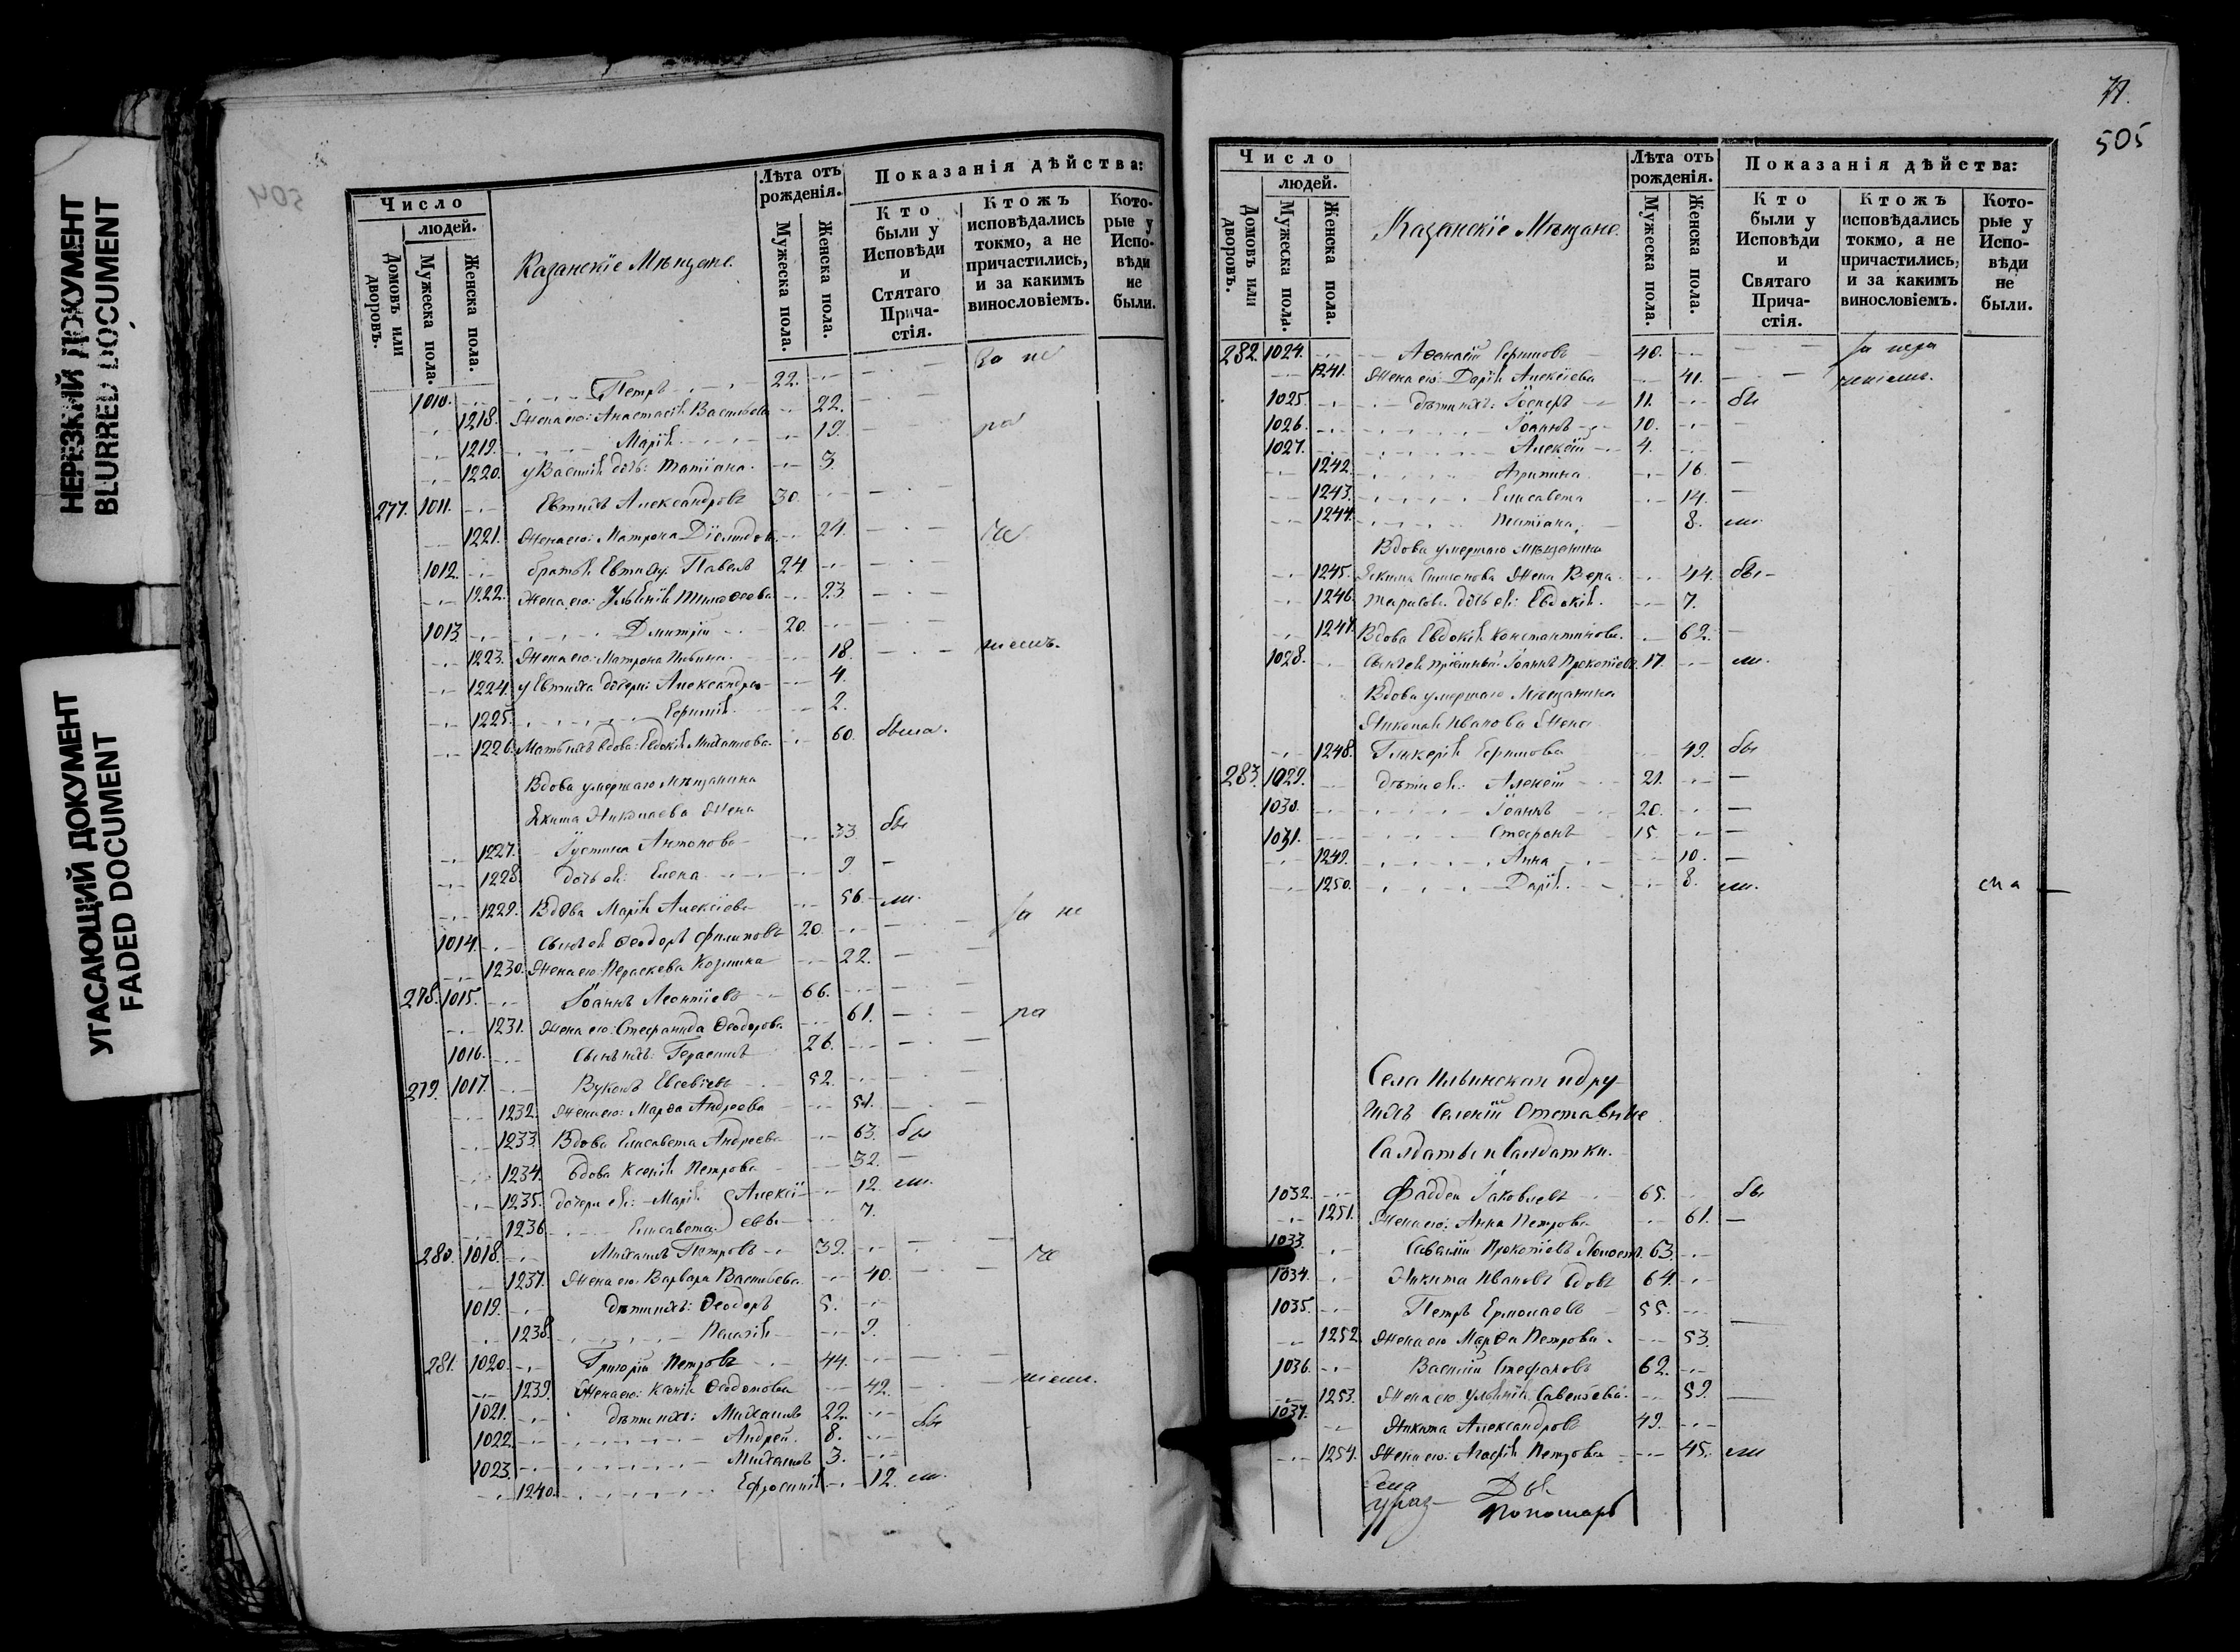 НЕРЕЗКИЙ ДОКУМЕНТ
BLURRED DOCUMENT
УГАСАЮЩИЙ ДОКУМЕНТ
FADED DOCUMENT
Число
людей.
Домовъ или дворовъ.
Мужеска пола.
Женска пола.
Казанскіе Мѣщане.
Лѣта отъ рожденія.
Мужеска пола.
Женска пола.
Показанія дѣйства:
Кто были у Исповѣди и Стятаго Прича-стія.
Ктожъ исповѣдались токмо, а не причастились, и за какимъ винословіемъ.
Кото-рые у Испо-вѣди не были.
1010. Петръ 22. За не
1218. Жена его: Анастасія Васильева 22.
1219. Марія 19. ра
1220. у Василія дочь: Татіана. 3.
277. 1011. Евтихъ Александровъ 30.
1221. Жена его: Матрона 24. че
1012. братъ Евтиха Павелъ 24.
1222. Жена его: Ульянія Тимоѳеева 23
1013. Дмитрій 20.
1223. Жена его: Матрона 18. ніемъ.
1224. у Евтиха дочери: Александра 4.
1225. 2.
1226. Мать ихъ вдова: Евдокія Михайлова 60. была.
Вдова умершаго мѣщанина
Николаева Жена
1227. Іустина Антонова 33. бы
1228. дочь ея: Елена 9. –
1229. Вдова Марія Алексіева 56. ли.
1014. Сынъ ея Ѳеодоръ Филиповъ 20. за не
1230. Жена его Параскева Козмина 22.
278. 1015. Іоаннъ Леонтіевъ 66.
1231. Жена его: Стефанида Ѳеодорова 61. ра
1016. Сынъ ихъ: Герасимъ 26.
279. 1017. Вуколъ Евсевіевъ 52.
1232. Жена его: Марѳа Андреева 51.
1233. Вдова Елисавета Андреева 63. бы
1234. вдова Ксенія Петрова 32. –
1235. дочери ея: Марія Алексі- 12. ли.
1236. Елисавета евы 7.
280. 1018. Михаилъ Петровъ 39. че
1237. Жена его: Варвара Васильева 40.
1019. дѣти ихъ: Ѳеодоръ 5.
1238. Пелагія 9.
281. 1020. Григорій Петровъ 44.
1239. Жена его: Ксенія 42. ніемъ.
1021. дѣти ихъ: Михаилъ 22.
1022. Андрей. 8. бы
1023. Михаилъ 3.
1240. Ефросинія 12. ли.
71.
505
Число
людей.
Домовъ или дворовъ.
Мужеска пола.
Женска пола.
Казанскіе Мѣщане.
Лѣта отъ рожденія.
Мужеска пола.
Женска пола.
Показанія дѣйства:
Кто были у Исповѣди и Святаго Прича-стія.
Ктожъ исповѣдались токмо, а не причастились, и за какимъ винословіемъ.
Кото-рые у Испо-вѣди не были.
282. 1024. Аѳанасій 40. За нера
1241. Жена его: Дарія Алексіева 41. ченіемъ.
1025. дѣти ихъ: 11. бы
1026. Іоаннъ 10. –
1027. Алексій 4.
1242. Агрипина 16. –
1243. Елисавета 14. –
1244. Татіана 8. ли.
Вдова умершаго мѣщанина
1245. Жена Вѣра 44. бы
1246. Тарасова. дочь ея: Евдокія. 7.
1247. Вдова Евдокія Константинова. 62. –
1028. Сынъ ея пріемный: Іоаннъ Прокопіевъ 17. ли.
Вдова умершаго Мѣщанина
Николая Иванова Жена
1248. Гликерія 49. бы
283. 1029. дѣти ея: Алексій 21. –
1030. Іоаннъ 20. –
1031. Стефанъ 15. –
1249. Анна 10. –
1250. Дарія 8. ли.
Села Ильинскаго и дру-
гихъ Селеній Отставные
Салдаты и Салдатки.
1032. Фаддей Іаковлевъ 65. бы
1251. Жена его: Анна Петрова 61. –
1033. Прокопіевъ 63.
1034. Никита Ивановъ вдовъ 64.
1035. Петръ Ермолаевъ 55.
1252. Жена его Марѳа Петрова 53. –
1036. Василій Стефановъ 62.
1253. Жена его Ульянія 59. –
1037. Никита Александровъ 49.
1254. Жена его: Агафія Петрова 45. ли
Пономарь